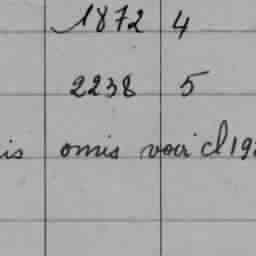 1872 4
2238 5
is omis voir cl 19